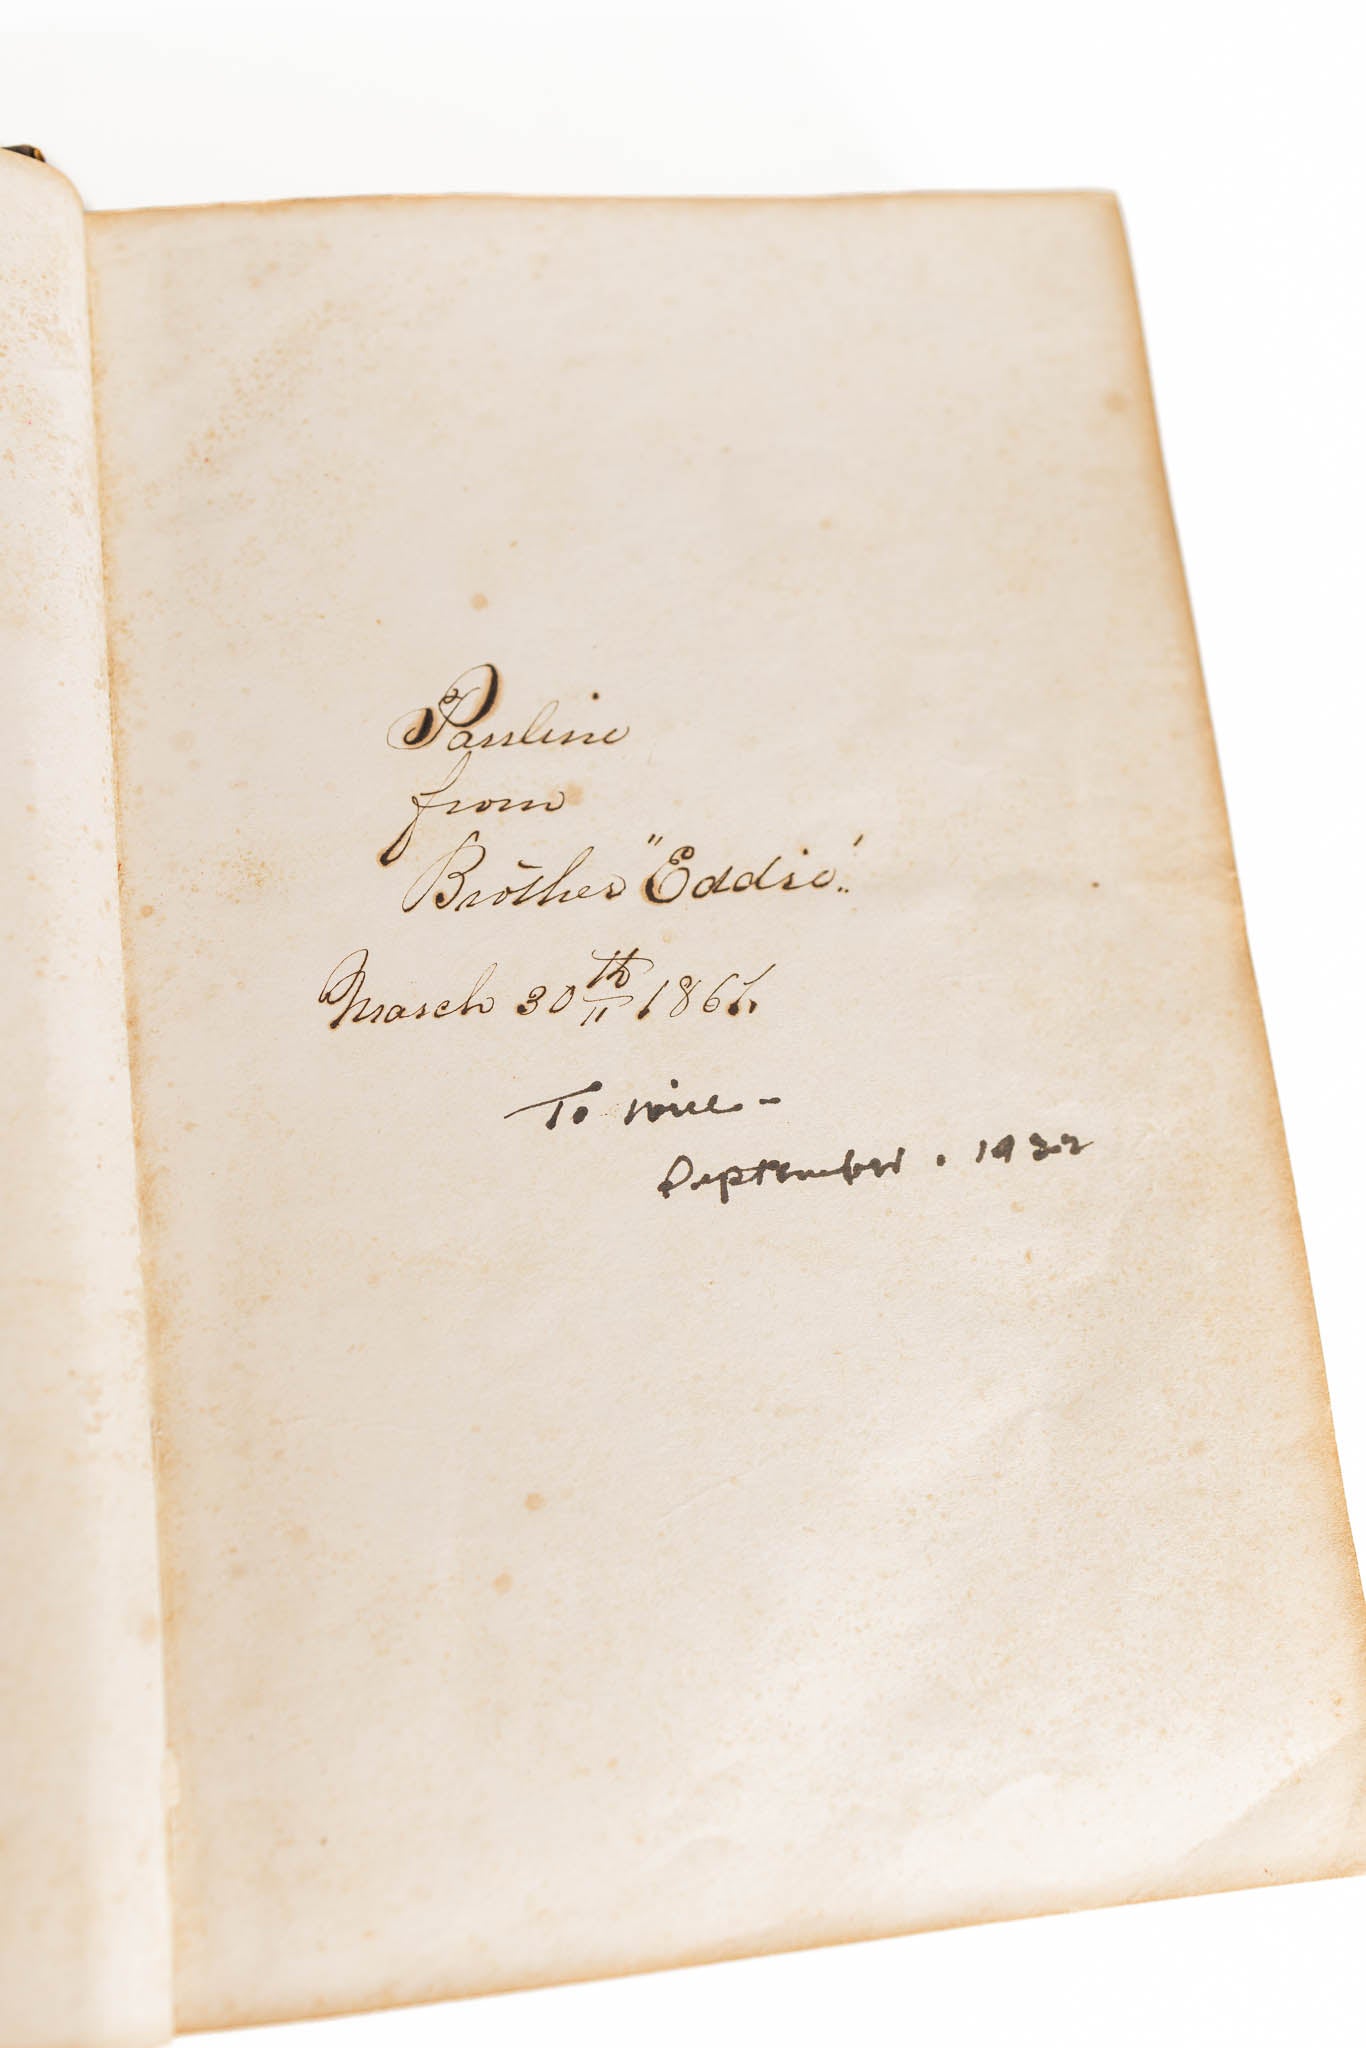 Pauline
from
Brother "Eddie".
March 30th 1867.
To Will-
September. 1932